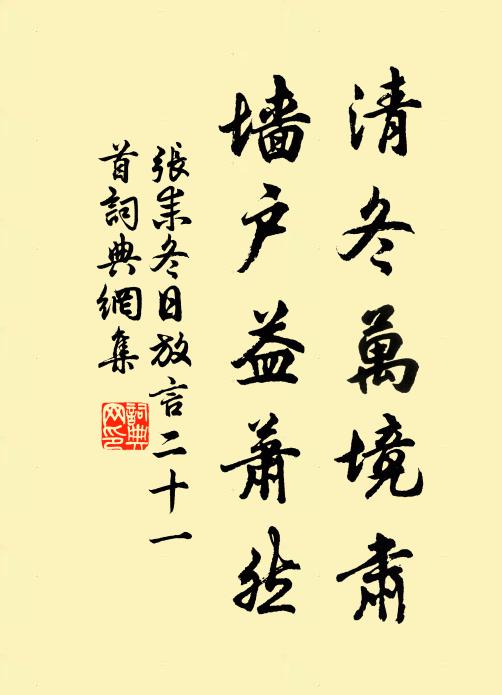 清冬萬境肅
墙户益蕭然
張耒冬日放言二十一
首詞典網集
詞典
网印